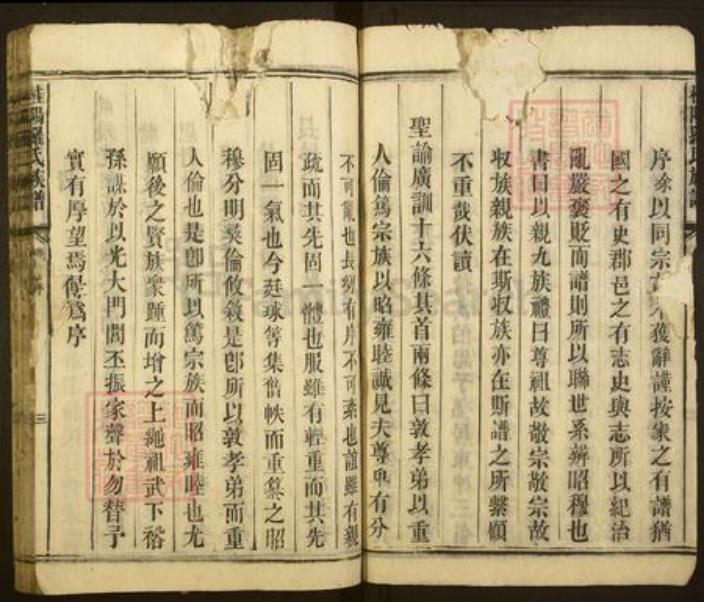 序余以同宗不獲辭謹按家之有譜猶
國之有史郡邑之有志史與志所以紀治
亂嚴褒貶而譜則所以聯世系辨昭穆也
書曰以親九族禮曰尊祖故敬宗敬宗故
収族親族在斯収族亦在斯譜之所繫顧
不重哉伏讀
聖諭廣訓十六條其首兩條曰敦孝弟以重
人倫篤宗族以昭雍睦誠見夫尊卑有分
不可亂也長幼有序不可紊也誼雖有親
疏而其先固一體也服雖有輕重而其先
固一氣也今廷球等集舊帙而重纂之昭
穆分明彛倫攸敘是卽所以敦孝弟而重
人倫也是卽所以篤宗族而昭雍睦也尤
願後之賢族衆踵而增之上繩祖武下裕
孫謀於以光大門閭丕振家聲於勿替予
實有厚望焉爲序
陽羅氏族譜
三